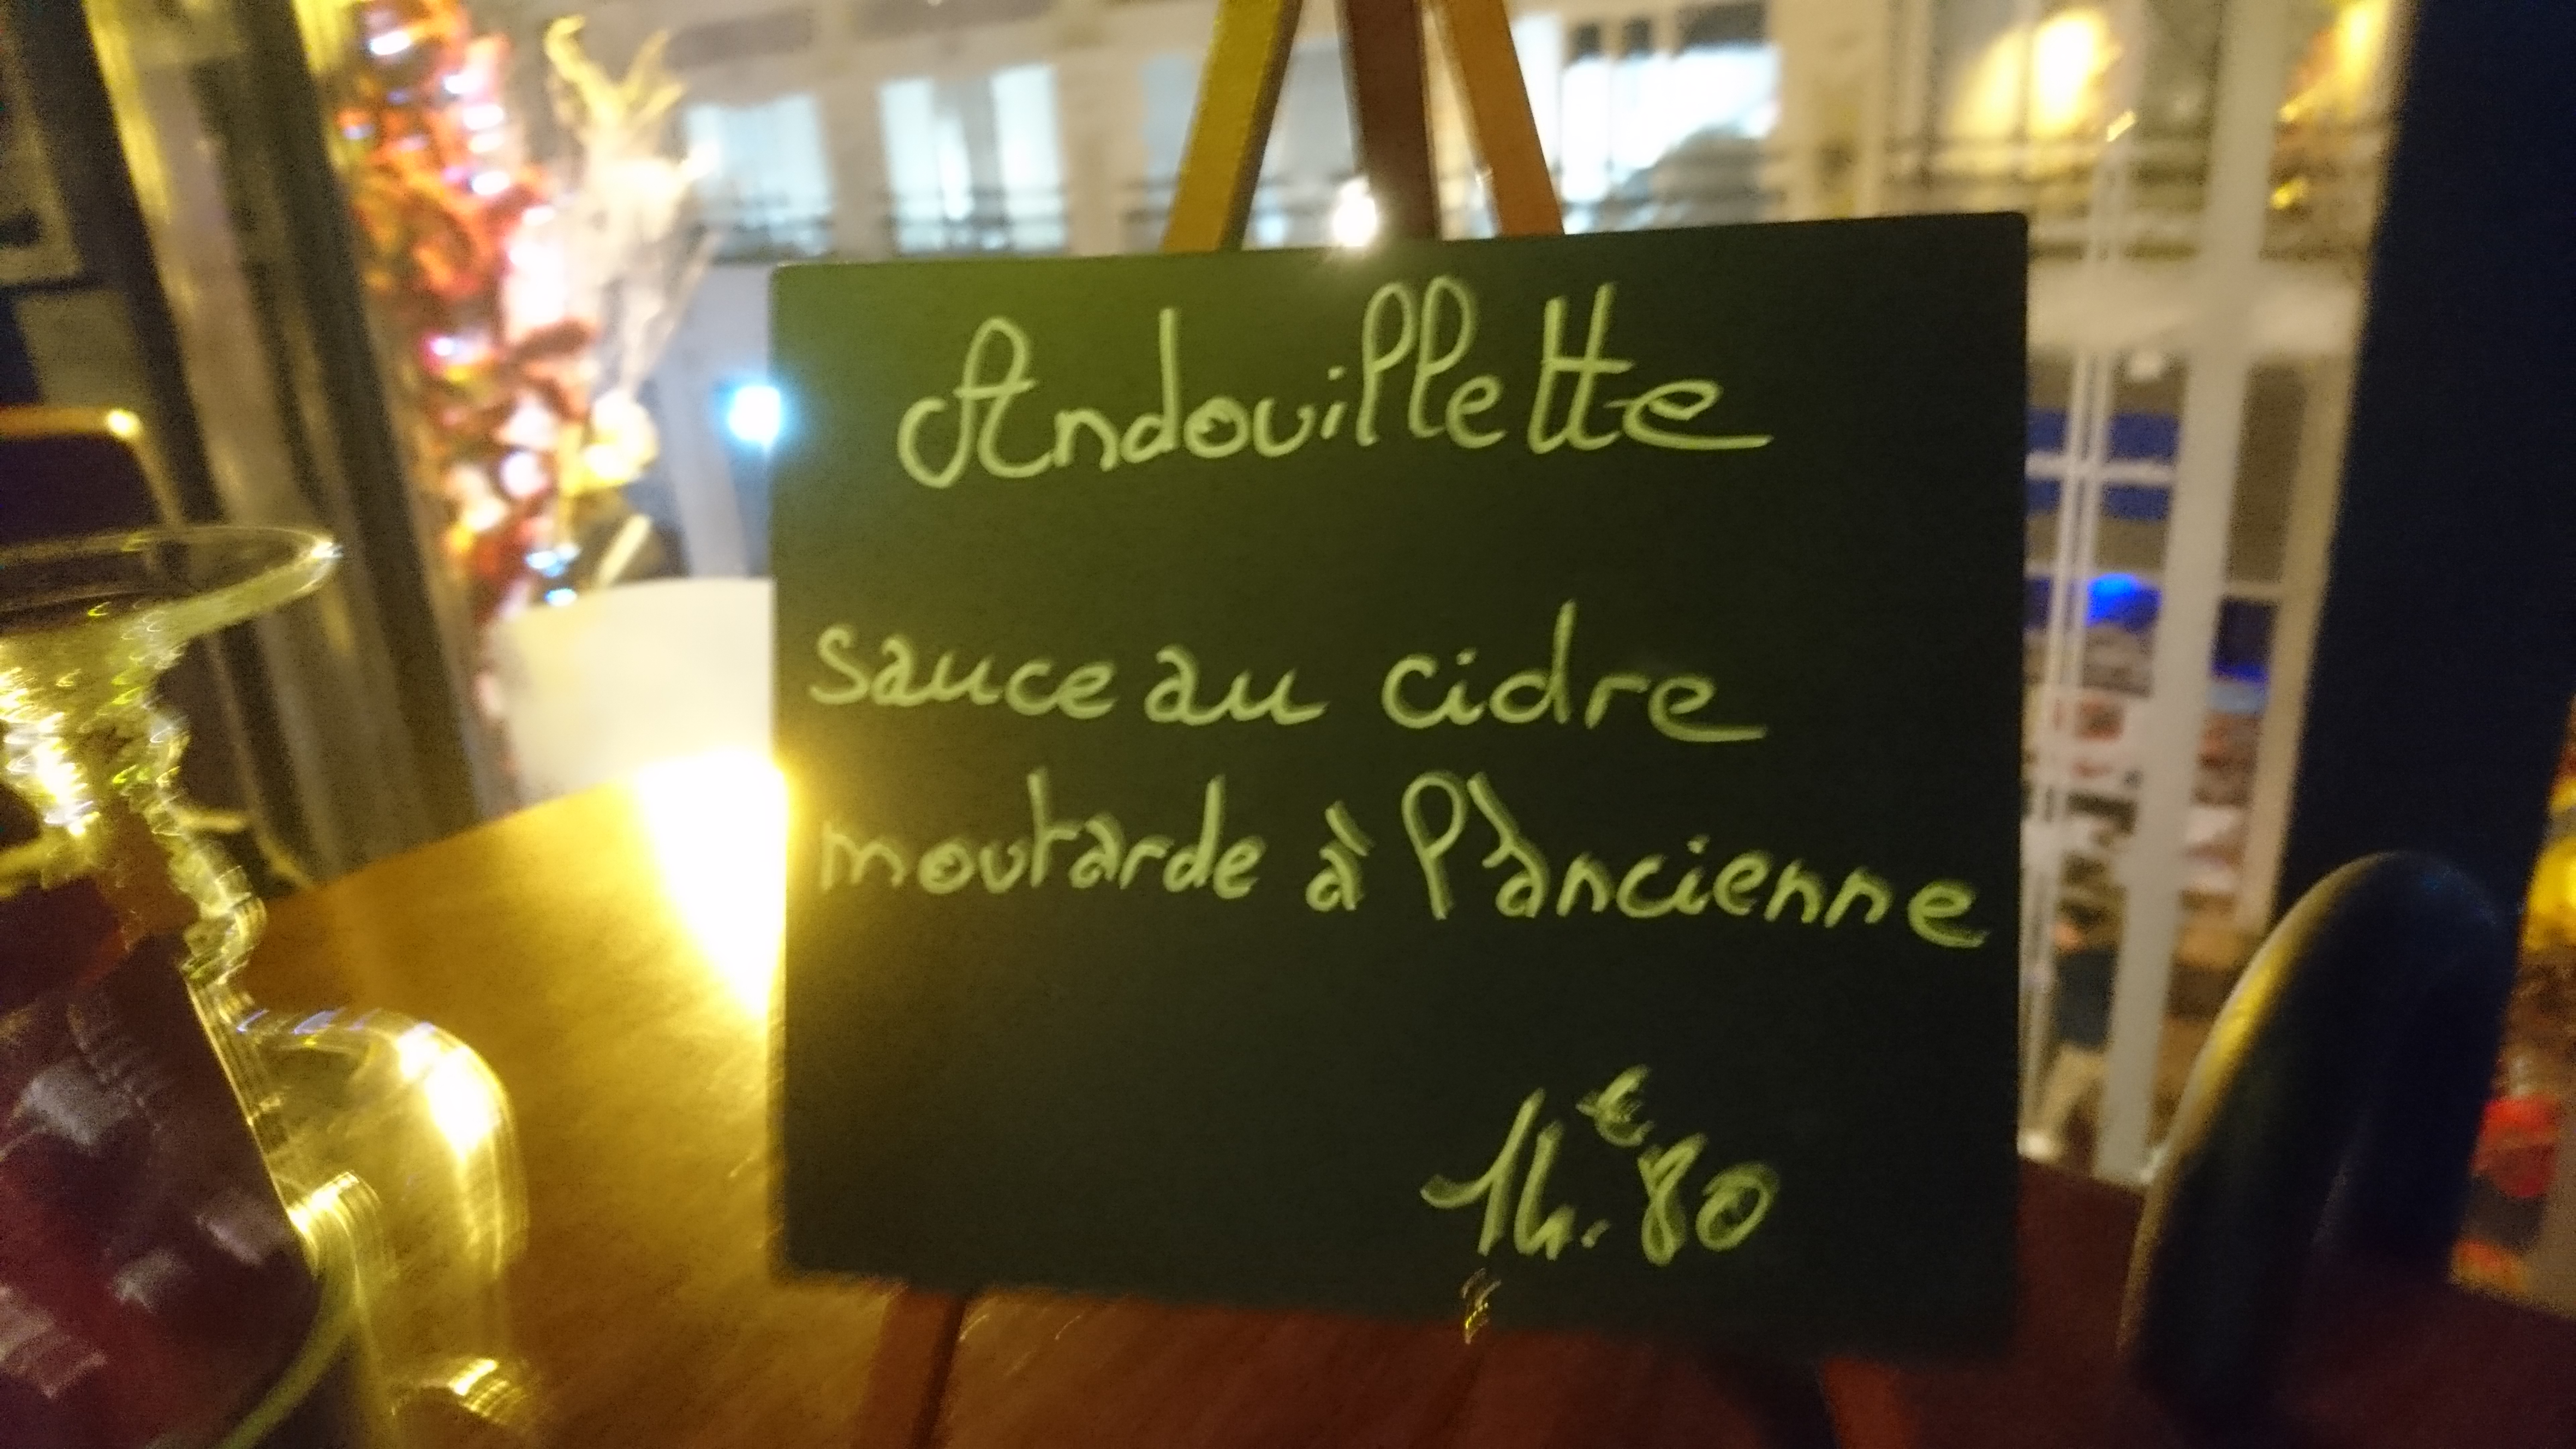 Andouillette
sauce au cidre
moutarde à l'ancienne
14.€80